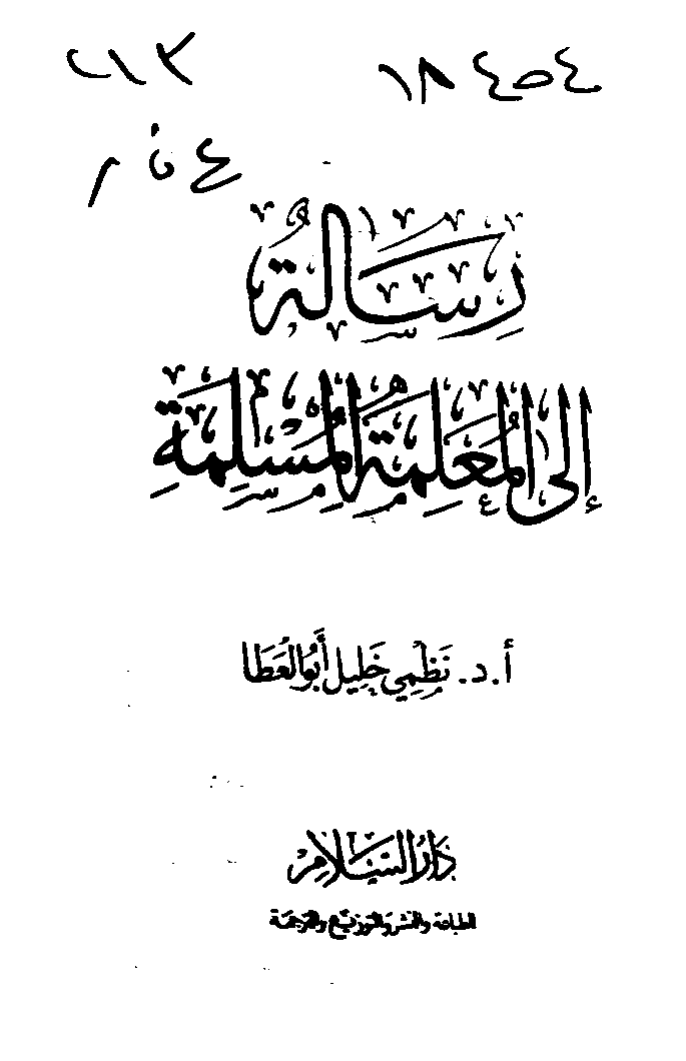 رِسَالَةٌ
إِلَى المُعَلِّمَةِ المُسْلِمَةِ
أ.د. نَظْمِي خَلِيل أَبُو العَطَا
دَارُ السَّلَامِ
للطباعة والنشر والتوزيع والترجمة